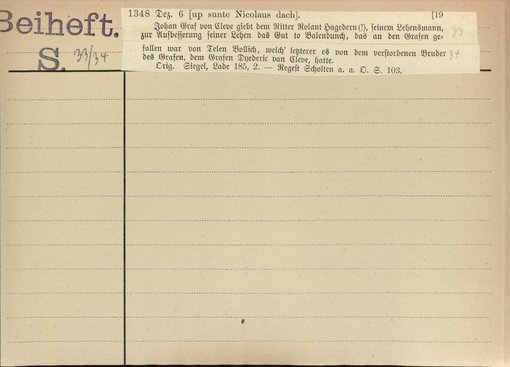 Beiheft.
S. 33/34
1348 Dez. 6 [up sunte Nicolaus dach]. [19
Johan Graf von Cleve giebt dem Ritter Rolant Hagedern (!), seinem Lehensmann,
zur Aufbesserung seiner Lehen das Gut to Valendunch, das an den Grafen ge- 33
fallen war von Telen Vollich, welch' letzterer es von dem verstorbenen Bruder 34
des Grafen, dem Grafen Dyederic van Cleve, hatte.
Orig. Siegel, Lade 185, 2. — Regest Scholten a. a. O. S. 103.